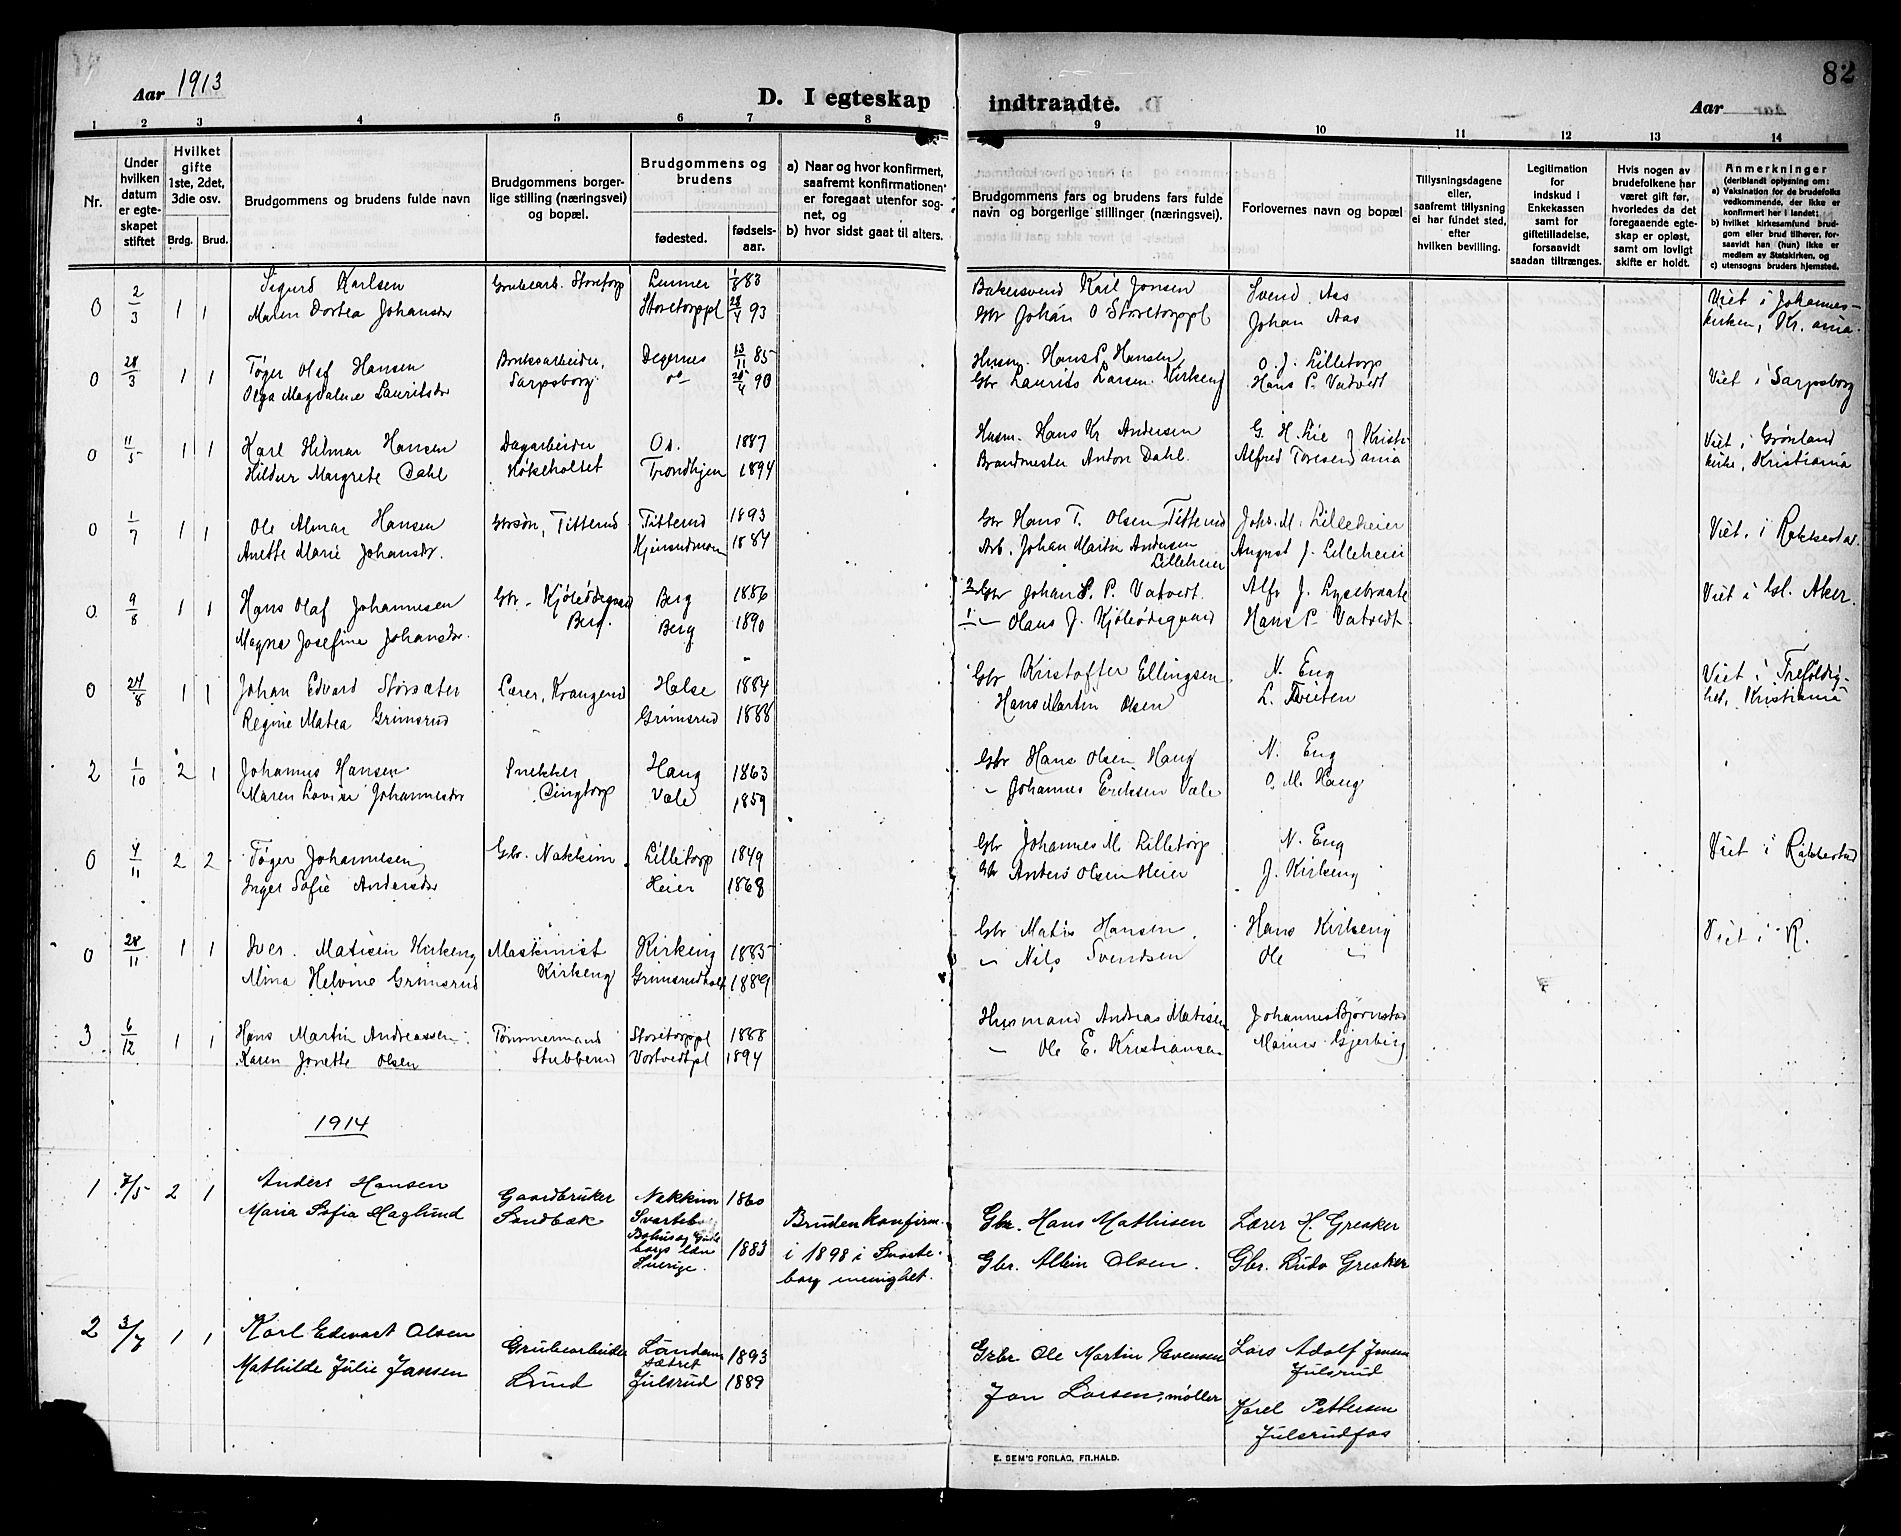 82
Aar 1913
D. I egteskap indtraadte.
Aar
1 2 3 4 5 6 7 8 9 10 11 12 13 14
Nr.
Under hvilken datum er egteskapet stiftet
Hvilket gifte 1ste, 2det, 3die osv.
Brdg. Brud.
Brudgommens og brudens fulde navn
Brudgommens borgerlige stilling (næringsvei) og bopæl.
Brudgommens og brudens
fødested.
fødselsaar.
a) Naar og hvor konfirmert, saafremt konfirmationen er foregaat utenfor sognet, og
b) hvor sidst gaat til alters.
Brudgommens fars og brudens fars fulde navn og borgerlige stillinger (næringsvei).
Forlovernes navn og bopæl
Tillysningsdagene eller, saafremt tillysning ei har fundet sted, efter hvilken bevilling.
Legitimation for indskud i Enkekassen samt for giftetilladelse, forsaavidt saadan tiltrænges.
Hvis nogen av brudefolkene har været gift før, hvorledes da det foregaaende egteskap er opløst, samt om lovligt skifte er holdt.
Anmerkninger
(deriblandt oplysning om:
a) Vaksination for de brudefolks vedkommende, der ikke er konfirmert her i landet;
b) hvilket kirkesamfund brudgom eller brud tilhører, forsaavidt han (hun) ikke er medlem av Statskirken, og
c) utensogns bruders hjemsted.
0 2/3 1 1 Sigurd Karlsen Grubearb. Storetorp Lunner 1/8 83 Bakersvend Karl Jonsen Svend Aas Viet i Johannes-
Maren Dortea Johansdr Storetorppl 28/4 93 Gbr Johan O Storetorppl Johan Aas kirken, Kr.ania.
0 28/3 1 1 Tøger Olaf Hansen Bruksarbeider, Degernes 13/11 85 Husm. Hans P. Hansen O. J. Lilletorp Viet i Sarpsborg
Olga Magdalene Lauritsdr Sarpsborg do 25/4 90 Gbr Laurits Larsen Kirkeng Hans P. Vatvedt
0 11/5 1 1 Karl Hilmar Hansen Dagarbeider Os. 1887 Husm. Hans Kr Andersen G. H. Lie Kristi- Viet i Grønland
Hildur Margrete Dahl Køkeholtet Trondhjem 1894 Brandmester Anton Dahl. Alfred Toresen ania kirke, Kristiania
0 1/7 1 1 Ole Almar Hansen Gbrsøn, Titterud Titterud 1893 Gbr Hans T. Olsen Titterud Johs. M. Lilleheier Viet i Rakkestad.
Anette Marie Johansdr. 1884 Arb. Johan Martin Andersen August J. Lilleheier
Lilleheier
0 9/8 1 1 Hans Olaf Johannesen Gbr. Kjølødegaard Berg 1886 2 Gbr Johan S. P. Vatvedt. Alfr J. Lysebraate Viet i Gl. Aker.
Magna Josefine Johansdr. Berg. Berg 1890 1 " Olaus J. Kjølødegaard Hans P. Vatvedt
0 24/8 1 1 Johan Edvard Storsæter Lærer, Krangerud Halse 1884 Gbr Kristoffer Ellingsen N. Eng Viet i Trefoldig-
Regine Matea Grimsrud Grimsrud 1888 Hans Martin Olsen L. Tveten het, Kristiania
2 1/10 2 1 Johannes Hansen Snekker Haug 1863 Gbr Hans Olsen Haug N. Eng
Maren Lovise Johannesdr Dingtorp Vale 1859 " Johannes Eriksen Vale O. M. Haug
0 4/11 2 2 Tøger Johannesen Gbr. Nakkim Lilletorp 1849 Gbr Johannes M. Lilletorp N. Eng Viet i Rakkestad
Inger Sofie Andersdr Heier 1868 Gbr Anders Olsen Heier J. Kirkeng
0 28/11 1 1 Iver Matisen Kirkeng Maskinist Kirkeng 1885 Gbr Matis Hansen Hans Kirkeng Viet i R.
Alma Helvine Grimsrud Kirkeng Grimsrudholt 1889 " Nils Svendsen Ole "
3 6/12 1 1 Hans Martin Andreassen Tømmermand Storetorppl 1888 Husmand Andreas Matisen Johannes Bjørnstad
Karen Jonette Olsen Stubberud Vortvedtpl 1894 " Ole E. Kristiansen Marius Gjerberg
1914
1 7/5 2 1 Anders Hansen Gaardbruker Nakkim 1860 Gbr. Hans Mathisen Lærer H. Greaker
Maria Sofia Haglund Sandbæk Svarteborg Bohus og Gøteborgs læn Sverige. 1883 Bruden konfirm. i 1898 i Svarteborg menighet. Gbr. Albin Olsen. Gbr. Ludv Greaker
2 3/7 1 1 Karl Edvart Olsen Grubearbeider Landemsætret 1893 Gbr Ole Martin Evensen Lars Adolf Jensen
Julsrud
Mathilde Julie Jansen Lund Julsrud 1889 Jan Larsen, møller Karel Pettersen
Julsrudfos
E. SEM'S FORLAG, FR.HALD.